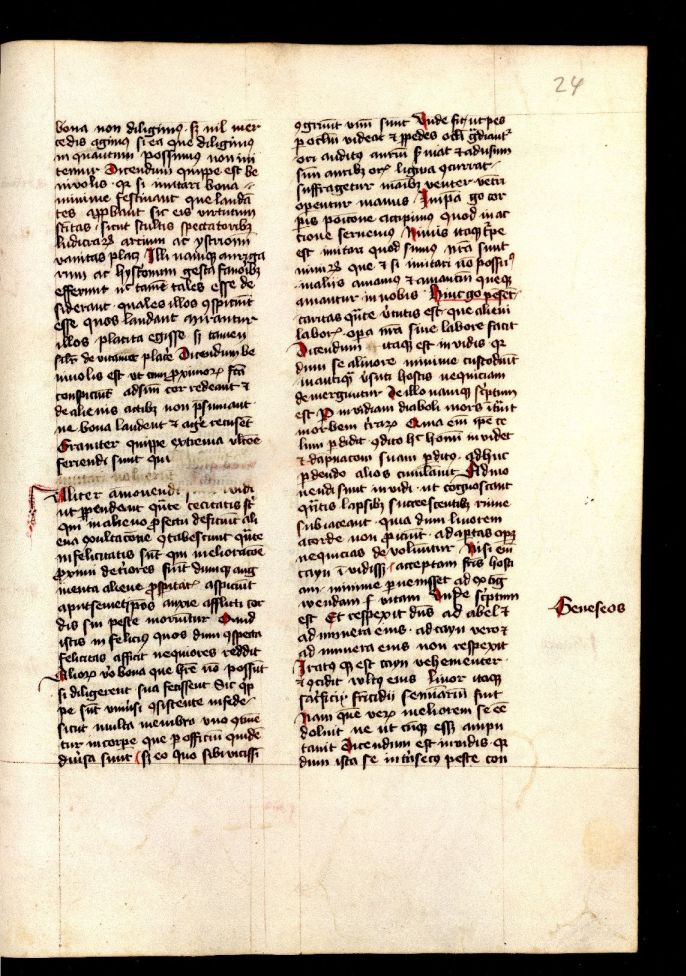 24
bona non diligimus. Sꝫ nil mer
cedis agimus si ea que diligimus
in quantum possimus non imi
temur Dicendum quippe est be
nivolis qꝛ si imitari bona
minime festinant que laudan
tes appbant sic eis virtutum
scitas sicut stultis spectatoribꝫ
ludicraꝝ artium ac ystrioni
vanitas placꝫ Illi namqꝫ auriga
rum ac hystrionum gesta favoribꝫ
efferunt nec tamen tales esse de
siderant quales illos ꝯspiciunt
esse quos laudant mirantur
illos placita egisse si tamen
Dicendum be
nivolis est ut cum ꝓximoꝝ fcā
conspiciunt ad suum cor redeant et
de alienis actibꝫ non psumant
ne bona laudent et agere recusent
Graviter quippe extrema ultione
feriendi sunt qui
Aliter amonendi invidi
ut ꝑpendant qūte cecitatis sūt
qui in alieno ꝓfectu deficiunt ali
ena exultacōne ꝯtabescunt qūte
infelicitatis sūt qui melioracōe
ꝓximi detiores fiūt dumqꝫ aug
menta aliene ꝓspitatꝭ aspiciunt
apud semetipsos anxie afflicti cor
dis sui peste moriuntur Quid
istis in felicius quos dum ꝯspecta
felicitas afficit nequiores reddit
Alioꝝ vero bona que hēre nō possūt
si diligerent sua fecissent Sic qꝫ
pe sūt uniūsi ꝯsistente in fide
sicut multa membra uno ꝯtine
tur in corpore que ꝑ officiū quide
divsa sunt sꝫ eo quo sibi vicissi
ꝯgruūt unū sunt Unde fit ut pes
ꝑ oclm videat et ꝑ pedes ocli gdiantꝛ
ori auditus auriū fviat et ad usum
suū auribꝫ orꝭ ligua ꝯcurrat
suffragetur maibꝫ venter vetri
operentur manus In ipa go cor
poris posicōne accipimus quod in ac
tione servemus Nimis itaqꝫ tꝑe
est imitari quod sumus nrā sunt
nimiꝝ que et si imitari nō possumꝰ
in aliis amamus et amantiū queqꝫ
amantur in nobis Hinc go penset
caritas qūte vtutis est que alieni
laborꝭ opa nrā sine labore facit
Dicendum itaqꝫ est in vidis qꝛ
dum se a livore minime custodiūt
in antiquā vsuti hostis nequiciam
demerguntur De illo namqꝫ scptum
est Invidia diaboli mors itūit
in orbem terraꝝ Quia em ipe ce
lum pdidit ꝯdito hc homi in videt
et dapnatom suam pdito adhuc
pdendo alios cumulavit Admo
nendi sunt invidi ut cognoscant
qūtis lapsibꝫ succrescentibꝫ ruine
sub iaceant quia dum livorem
a corde non ꝓiciūt ad aptas opꝫ
nequicias devolvuntur Nisi em
cayn i vidissꝫ acceptam frīs hosti
am minime pvenisset ad extīg
wendam f vitam Unde scptum
est Et respexit dns ad abel et
ad munera eius. ad cayn vero et
ad munera eius non respexit
Iratꝰ qꝫ est cayn vehementer
et ꝯcidit vultꝰ eius livor itaqꝫ
sacficii frīcidii seminariū fuit
Nam que verꝫ meliorem se ēē
doluit ne ut cūqꝫ essꝫ ampu
tavit Dicendum est invidis qꝛ
dum ista se intsecꝰ peste con
Geneseos